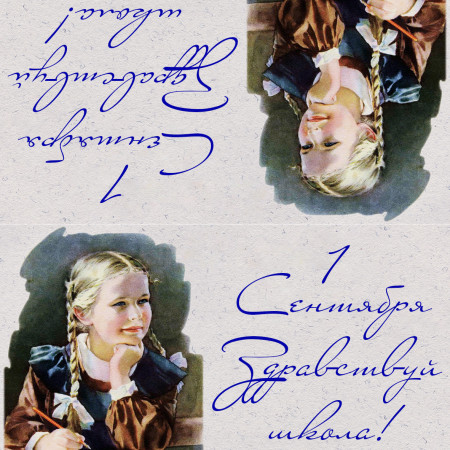 1
Сентября
Здравствуй
школа!
1
Сентября
Здравствуй
школа!